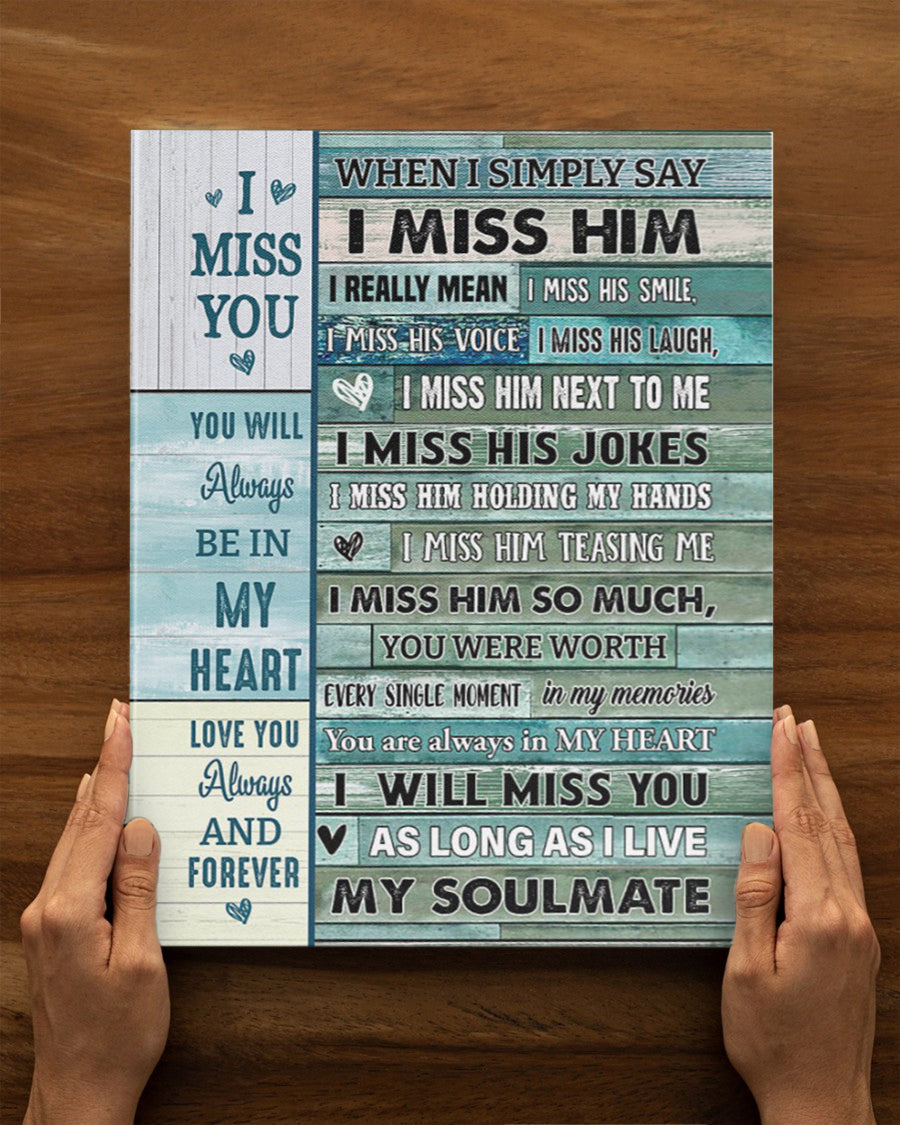 I
MISS
YOU
YOU WILL
Always
BE IN
MY
HEART
LOVE YOU
Always
AND
FOREVER
WHEN I SIMPLY SAY
I MISS HIM
I REALLY MEAN I MISS HIS SMILE,
I MISS HIS VOICE I MISS HIS LAUGH,
I MISS HIM NEXT TO ME
I MISS HIS JOKES
I MISS HIM HOLDING MY HANDS
I MISS HIM TEASING ME
I MISS HIM SO MUCH,
YOU WERE WORTH
EVERY SINGLE MOMENT in my memories
You are always in MY HEART
I WILL MISS YOU
AS LONG AS I LIVE
MY SOULMATE